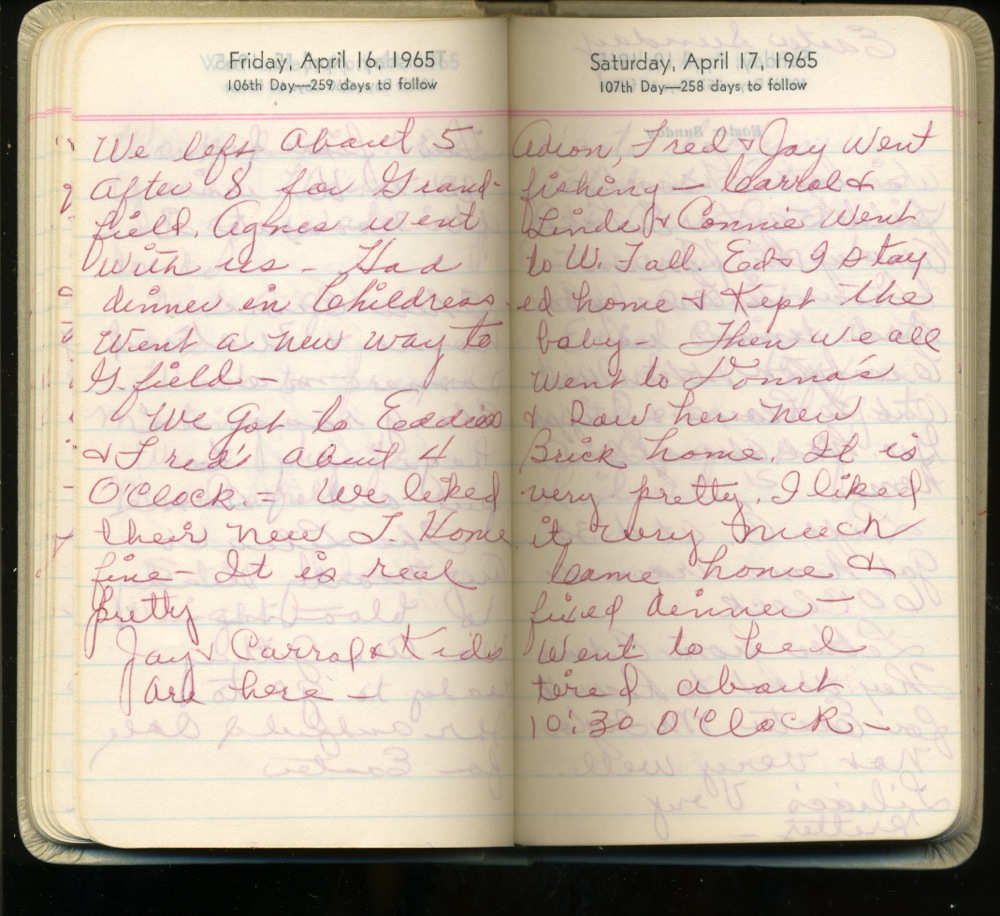 Friday, April 16, 1965
106th Day—259 days to follow
We left about 5
after 8 for Grand-
field. Agnes went
with us - Had
dinner in Childress.
Went a new way to
G. field -
We got to Eddie's
& Fred's about 4
O'Clock. - We liked
their new T. Home
fine - It is real
pretty
Jay & Carrol & Kids
are here -
Saturday, April 17, 1965
107th Day—258 days to follow
Adron, Fred & Jay Went
fishing - Carrol &
Linda & Connie Went
to W. Fall. Ed & I stay
ed home & Kept the
baby - Then we all
went to Donna's
& Saw her new
Brick home. It is
very pretty. I liked
it very much
Came home &
fixed dinner -
Went to bed
tired about
10:30 O'Clock -